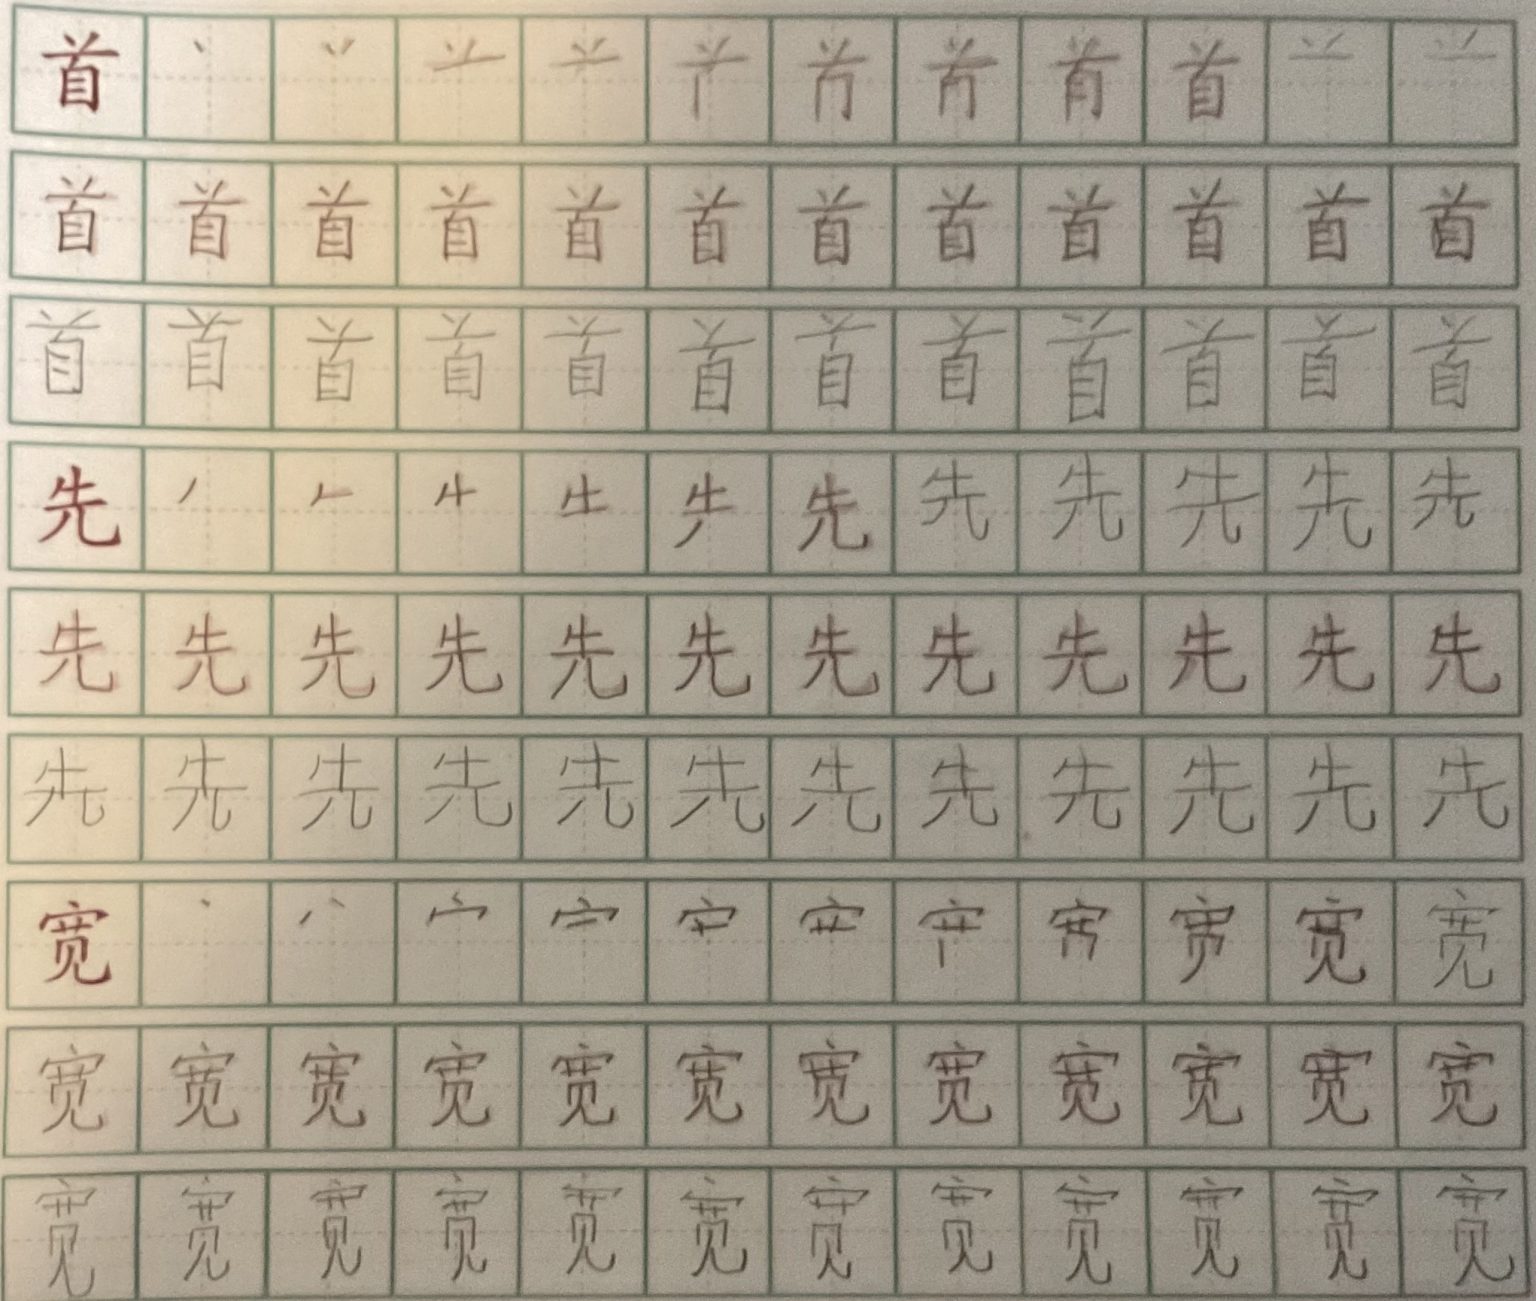 首 首
首 首 首 首 首 首 首 首 首 首 首 首
首 首 首 首 首 首 首 首 首 首 首 首
先 先 先 先 先 先 先
先 先 先 先 先 先 先 先 先 先 先 先
先 先 先 先 先 先 先 先 先 先 先 先
宽 宽 宽
宽 宽 宽 宽 宽 宽 宽 宽 宽 宽 宽 宽
宽 宽 宽 宽 宽 宽 宽 宽 宽 宽 宽 宽